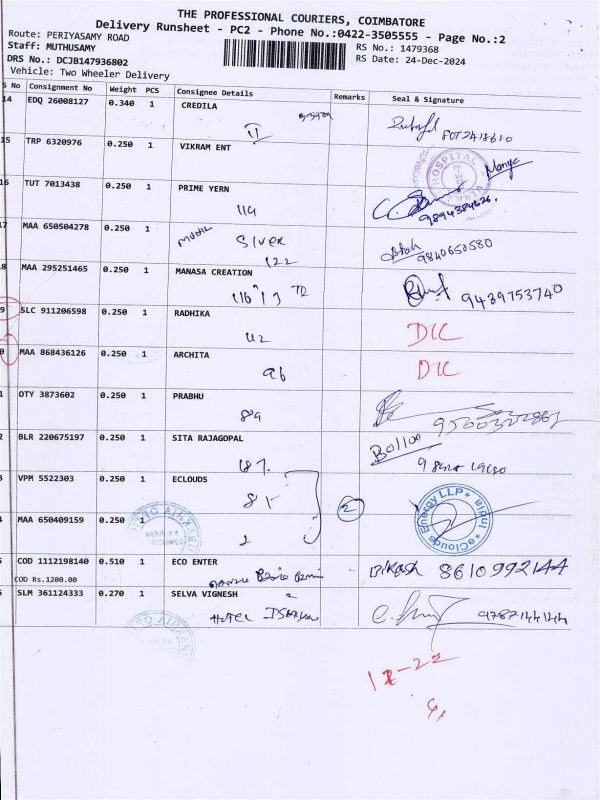 THE PROFESSIONAL COURIERS, COIMBATORE
Delivery Runsheet - PC2 - Phone No.:0422-3505555 - Page No.:2
Route: PERIYASAMY ROAD
RS No.: 1479368
Staff: MUTHUSAMY
RS Date: 24-Dec-2024
DRS No.: DCJB147936802
Vehicle: Two Wheeler Delivery
S No Consignment No Weight PCS Consignee Details Remarks Seal & Signature
14 EDQ 26008127 0.340 1 CREDILA
15 TRP 6320976 0.250 1 VIKRAM ENT
HOSPITAL
16 TUT 7013438 0.250 1 PRIME YERN
119
9894384626.
17 MAA 650504278 0.250 1 SIVER
122
9840650580
18 MAA 295251465 0.250 1 MANASA CREATION
9439753740
9 SLC 911206598 0.250 1 RADHIKA
42 DIC
0 MAA 868436126 0.250 1 ARCHITA
96 DIC
1 OTY 3873602 0.250 1 PRABHU
89
2 BLR 220675197 0.250 1 SITA RAJAGOPAL
187.
3 VPM 5522303 0.250 1 ECLOUDS
85
2
4 MAA 650409159 0.250 1
2
Energy LLP * Bipul * eClouds
5 COD 1112198140 0.510 1 ECO ENTER
Bikash 8610992144
COD Rs.1200.00
SLM 361124333 0.270 1 SELVA VIGNESH
HOTEL
9787144144
12-22